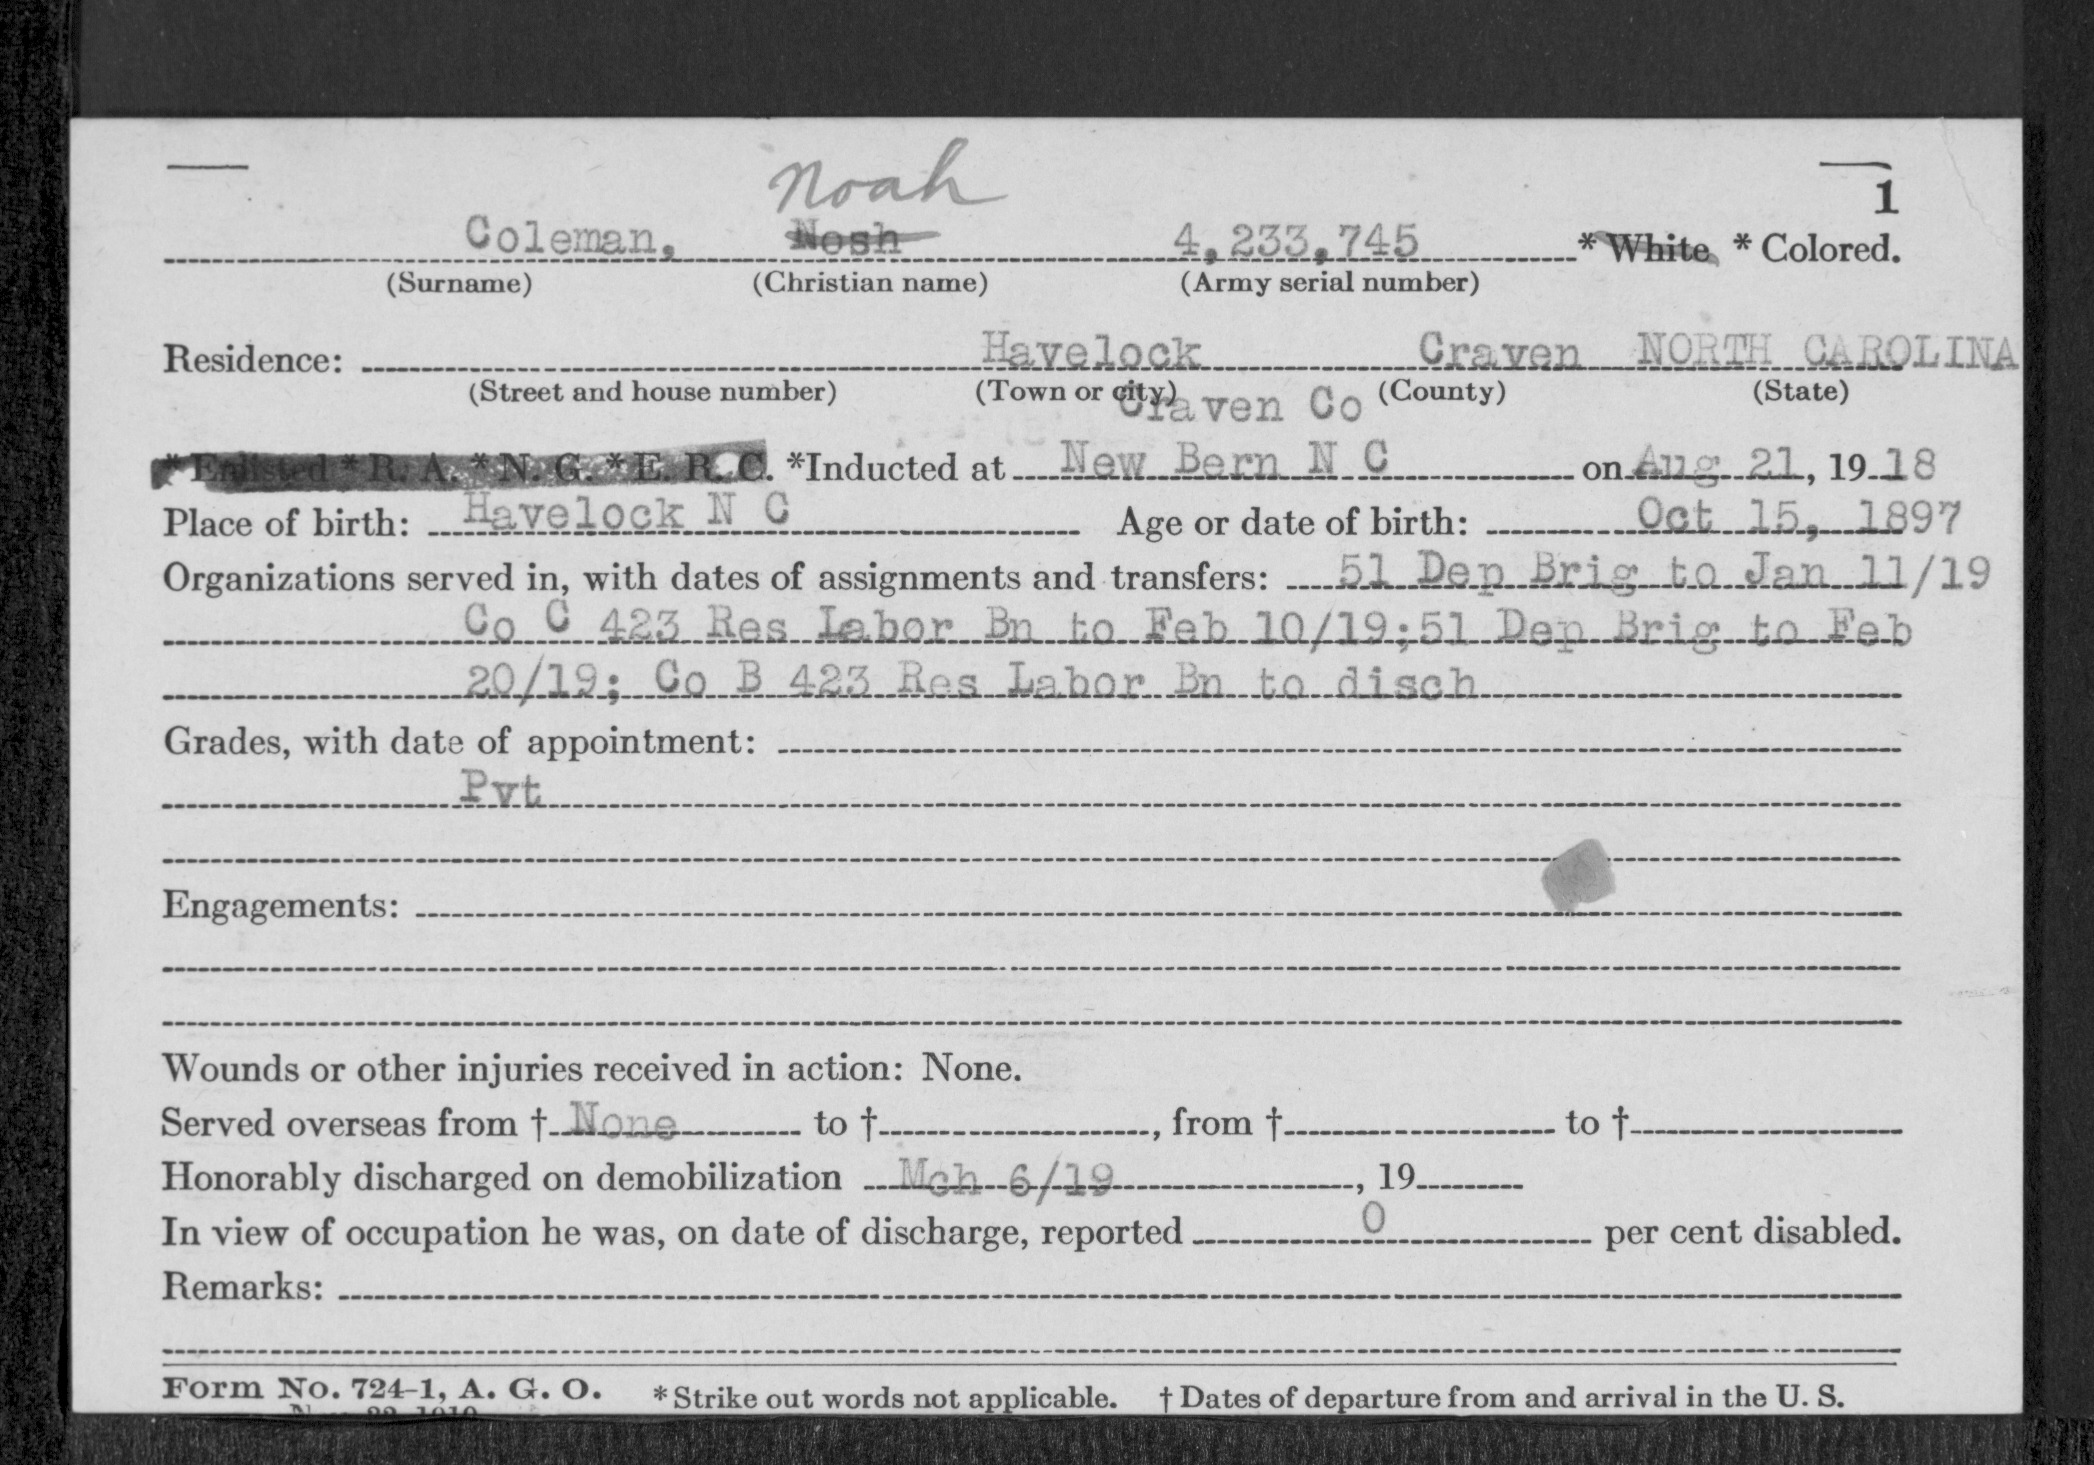 Noah
1
Coleman, Nosh 4,233,745 * White * Colored.
(Surname) (Christian name) (Army serial number)
Residence: Havelock Craven NORTH CAROLINA
(Street and house number) (Town or city) (County) (State)
Craven Co
* Enlisted * R. A. * N. G. * E. R. C. *Inducted at New Bern N C on Aug 21, 19 18
Place of birth: Havelock N C Age or date of birth: Oct 15, 1897
Organizations served in, with dates of assignments and transfers: 51 Dep Brig to Jan 11/19
Co C 423 Res Labor Bn to Feb 10/19;51 Dep Brig to Feb
20/19; Co B 423 Res Labor Bn to disch
Grades, with date of appointment:
Pvt
Engagements:
Wounds or other injuries received in action: None.
Served overseas from † None to †, from † to †
Honorably discharged on demobilization Mch 6/19, 19
In view of occupation he was, on date of discharge, reported 0 per cent disabled.
Remarks:
Form No. 724-1, A. G. O. * Strike out words not applicable. † Dates of departure from and arrival in the U. S.